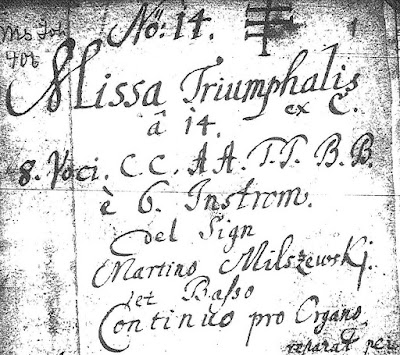 Nō: 14. 1
Ms Joh
406
Missa Triumphalis
ex C.
â 14.
8. Voci. C. C. A A. T. T. B. B.
è 6. Instrom.
del Sign
Martino Milszewskj.
et Basso
Continuo pro Organo
reparat